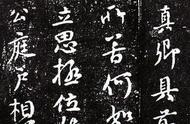 真卿具
所苦何如
立思極位
公庭户相